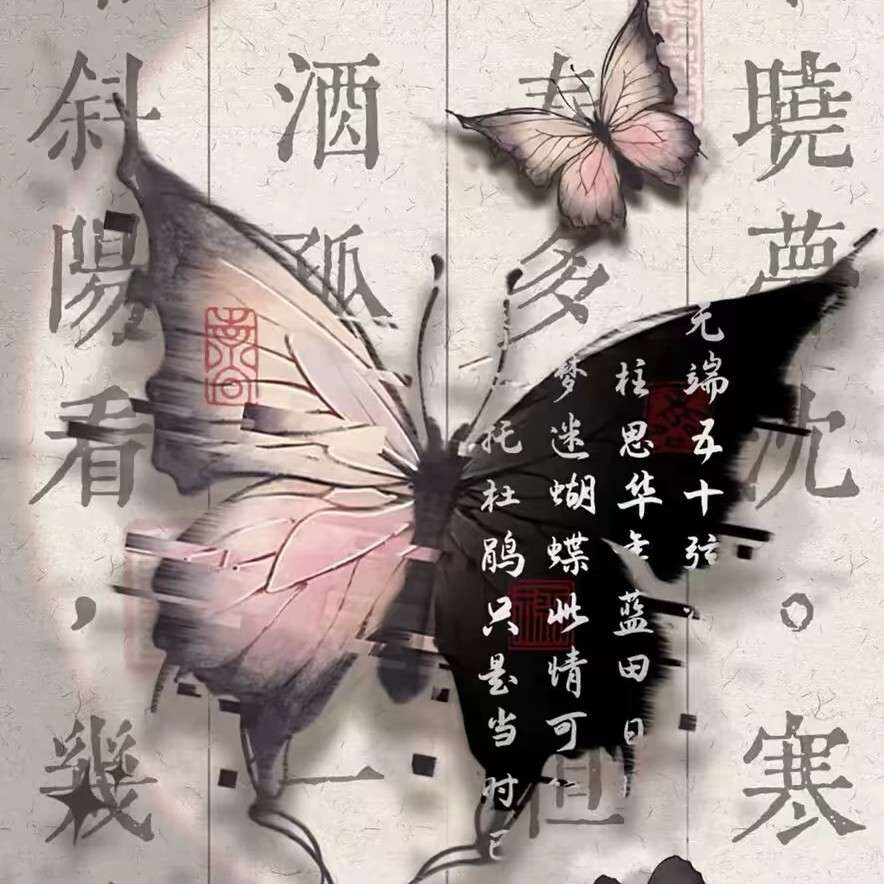 曉夢沈。寒
春多但
酒孤一
斜陽看，幾
无端五十弦
柱思华年蓝田日
梦迷蝴蝶此情可
托杜鹃只是当时已